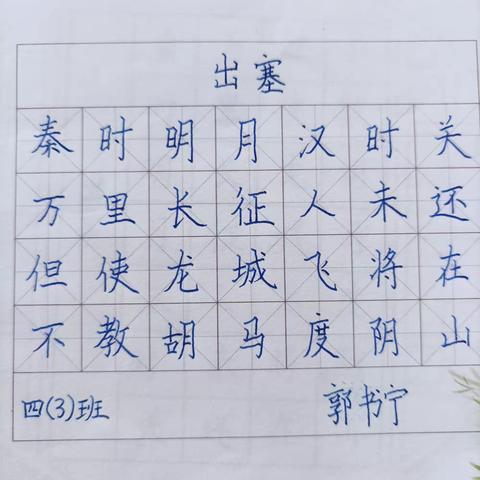 出塞
秦时明月汉时关
万里长征人未还
但使龙城飞将在
不教胡马度阴山
四(3)班 郭书宁